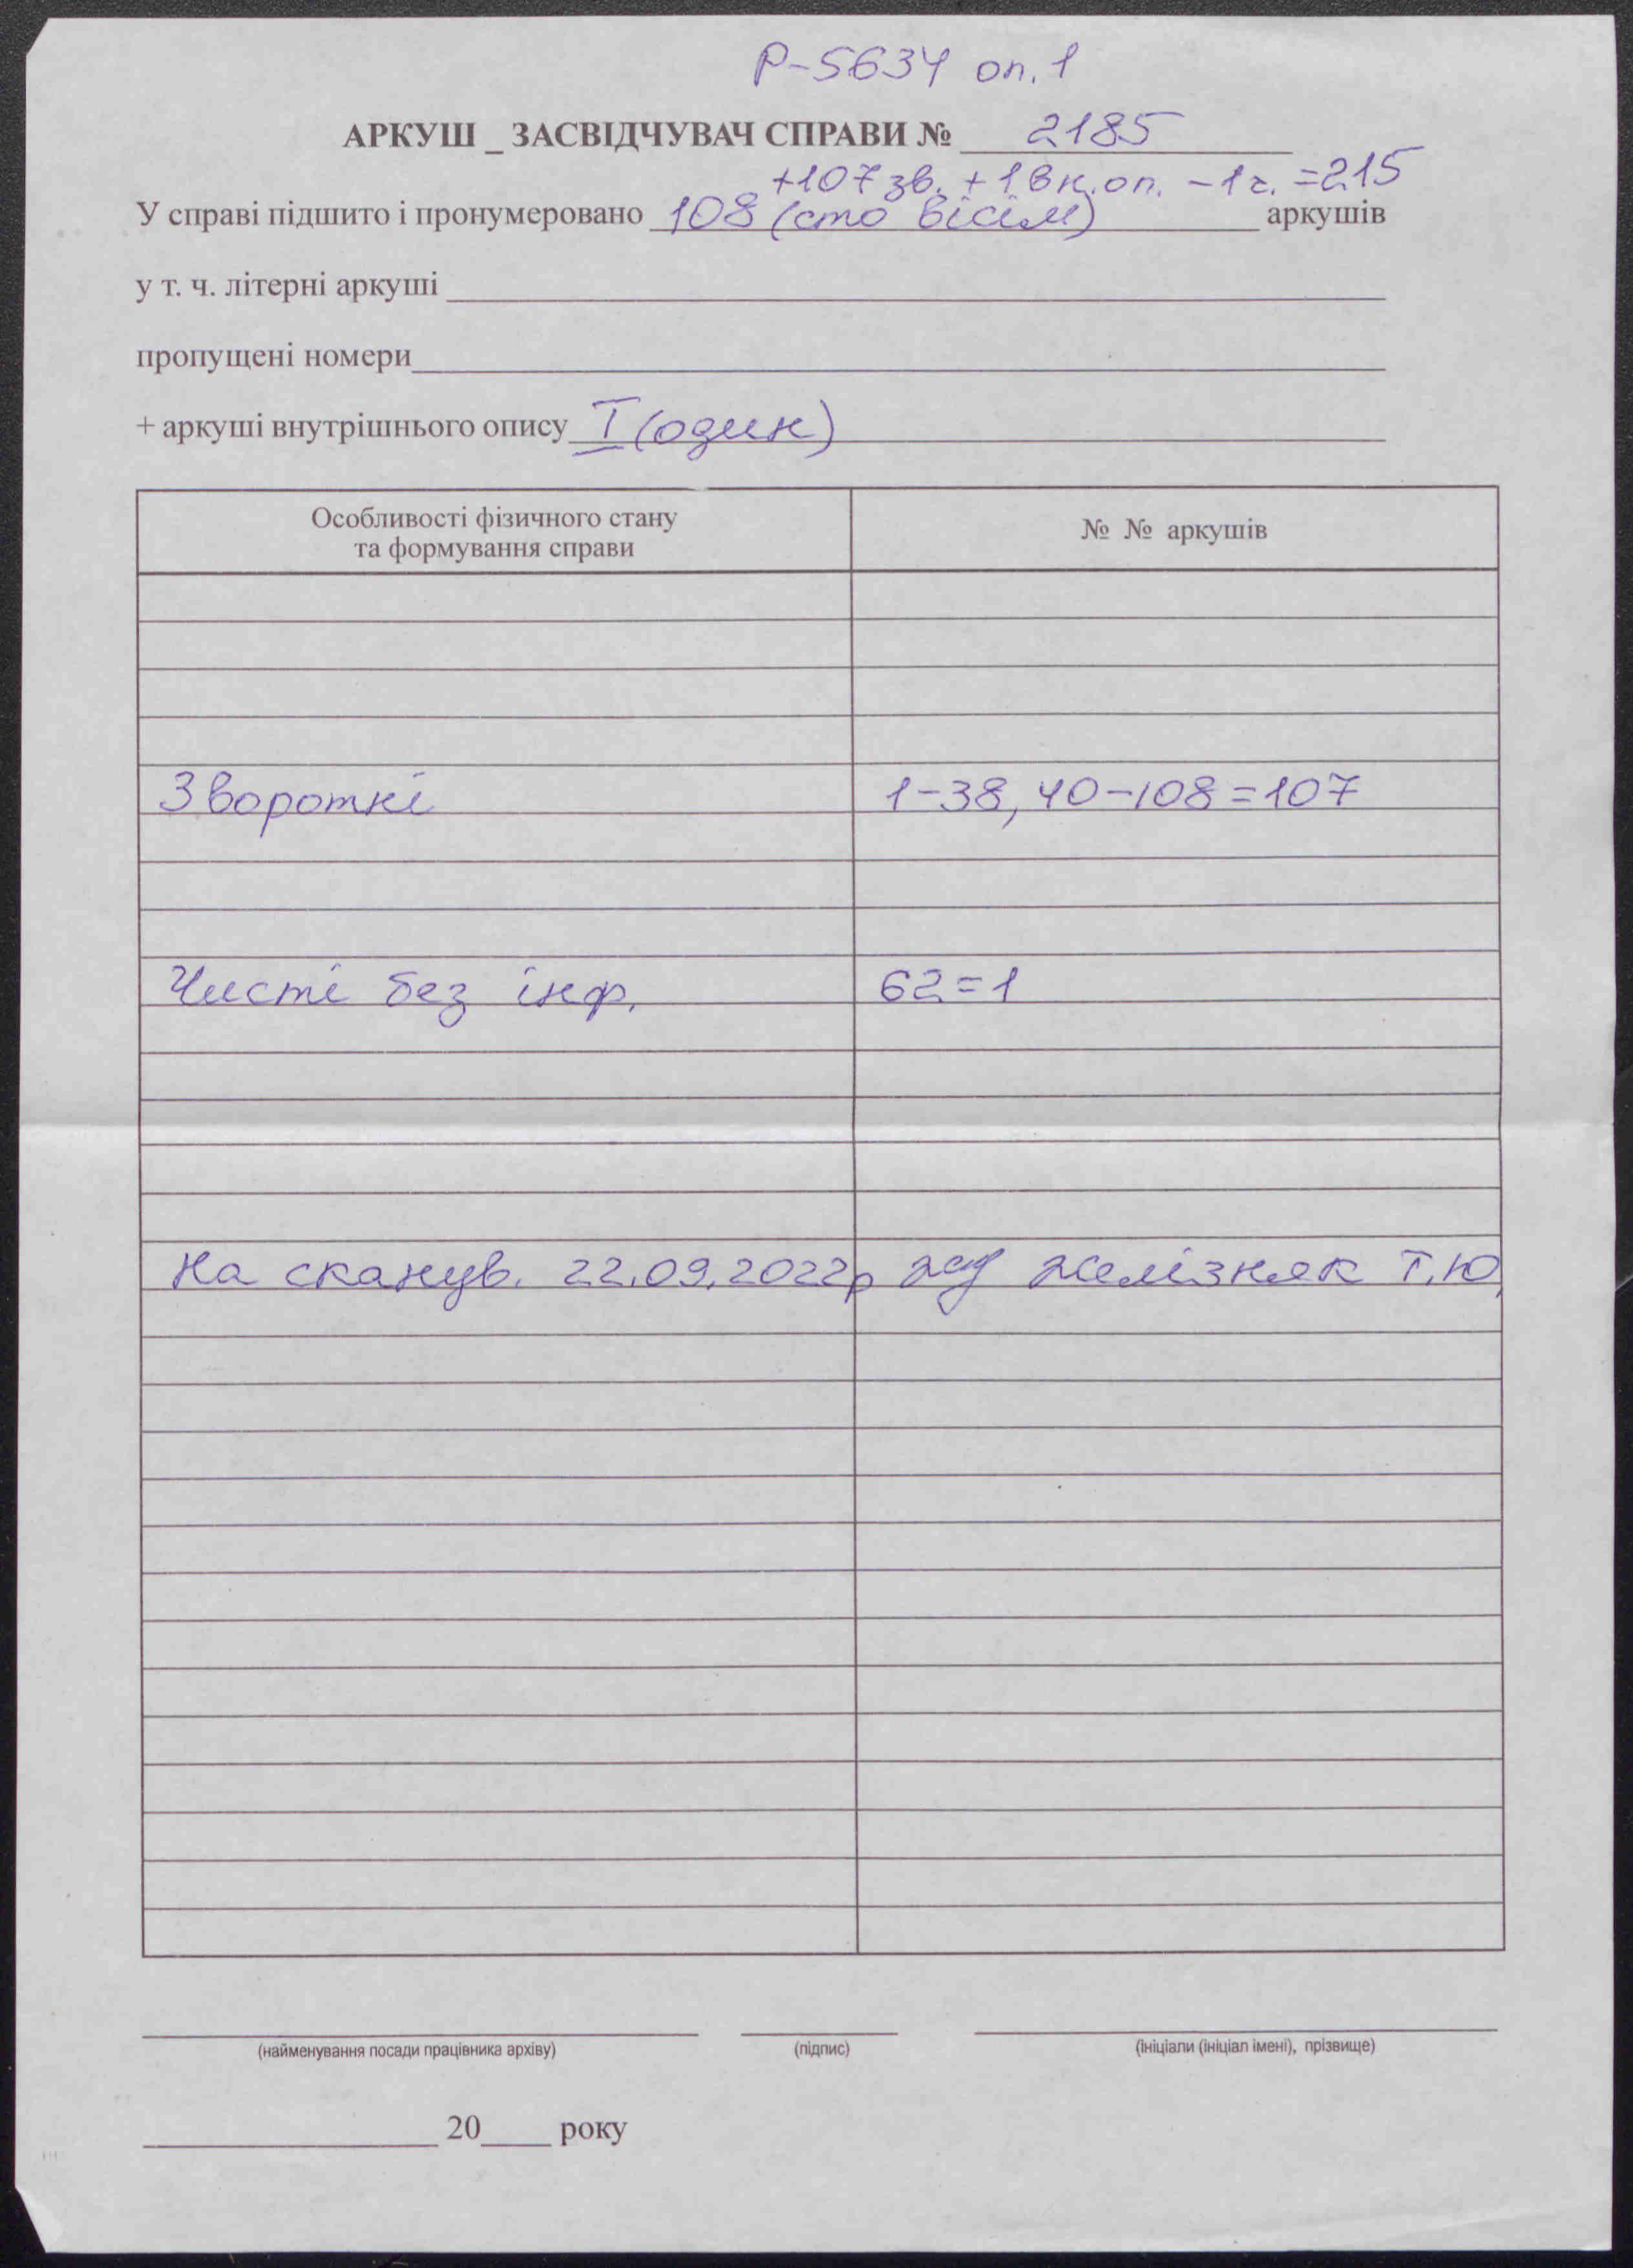 Р-5634 оп. 1
АРКУШ _ ЗАСВІДЧУВАЧ СПРАВИ № 2185
+107 зв. + 1 вн. оп. - 1 ч. = 215
У справі підшито і пронумеровано 108 (сто вісім) аркушів
у т. ч. літерні аркуші
пропущені номери
+ аркуші внутрішнього опису I (один)
Особливості фізичного стану та формування справи
№ № аркушів
Зворотні 1-38, 40-108=107
Чисті без інф. 62=1
На сканув. 22.09.2022р Желізняк Т.Ю.
(найменування посади працівника архіву) (підпис) (ініціали (ініціал імені), прізвище)
20 року